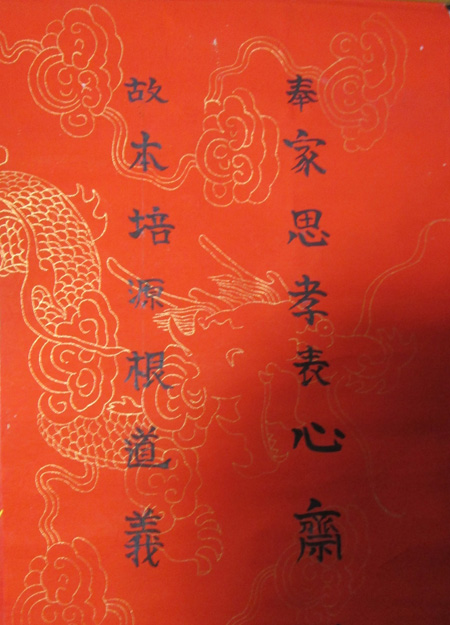 奉家思孝表心齋
故本培源根道義